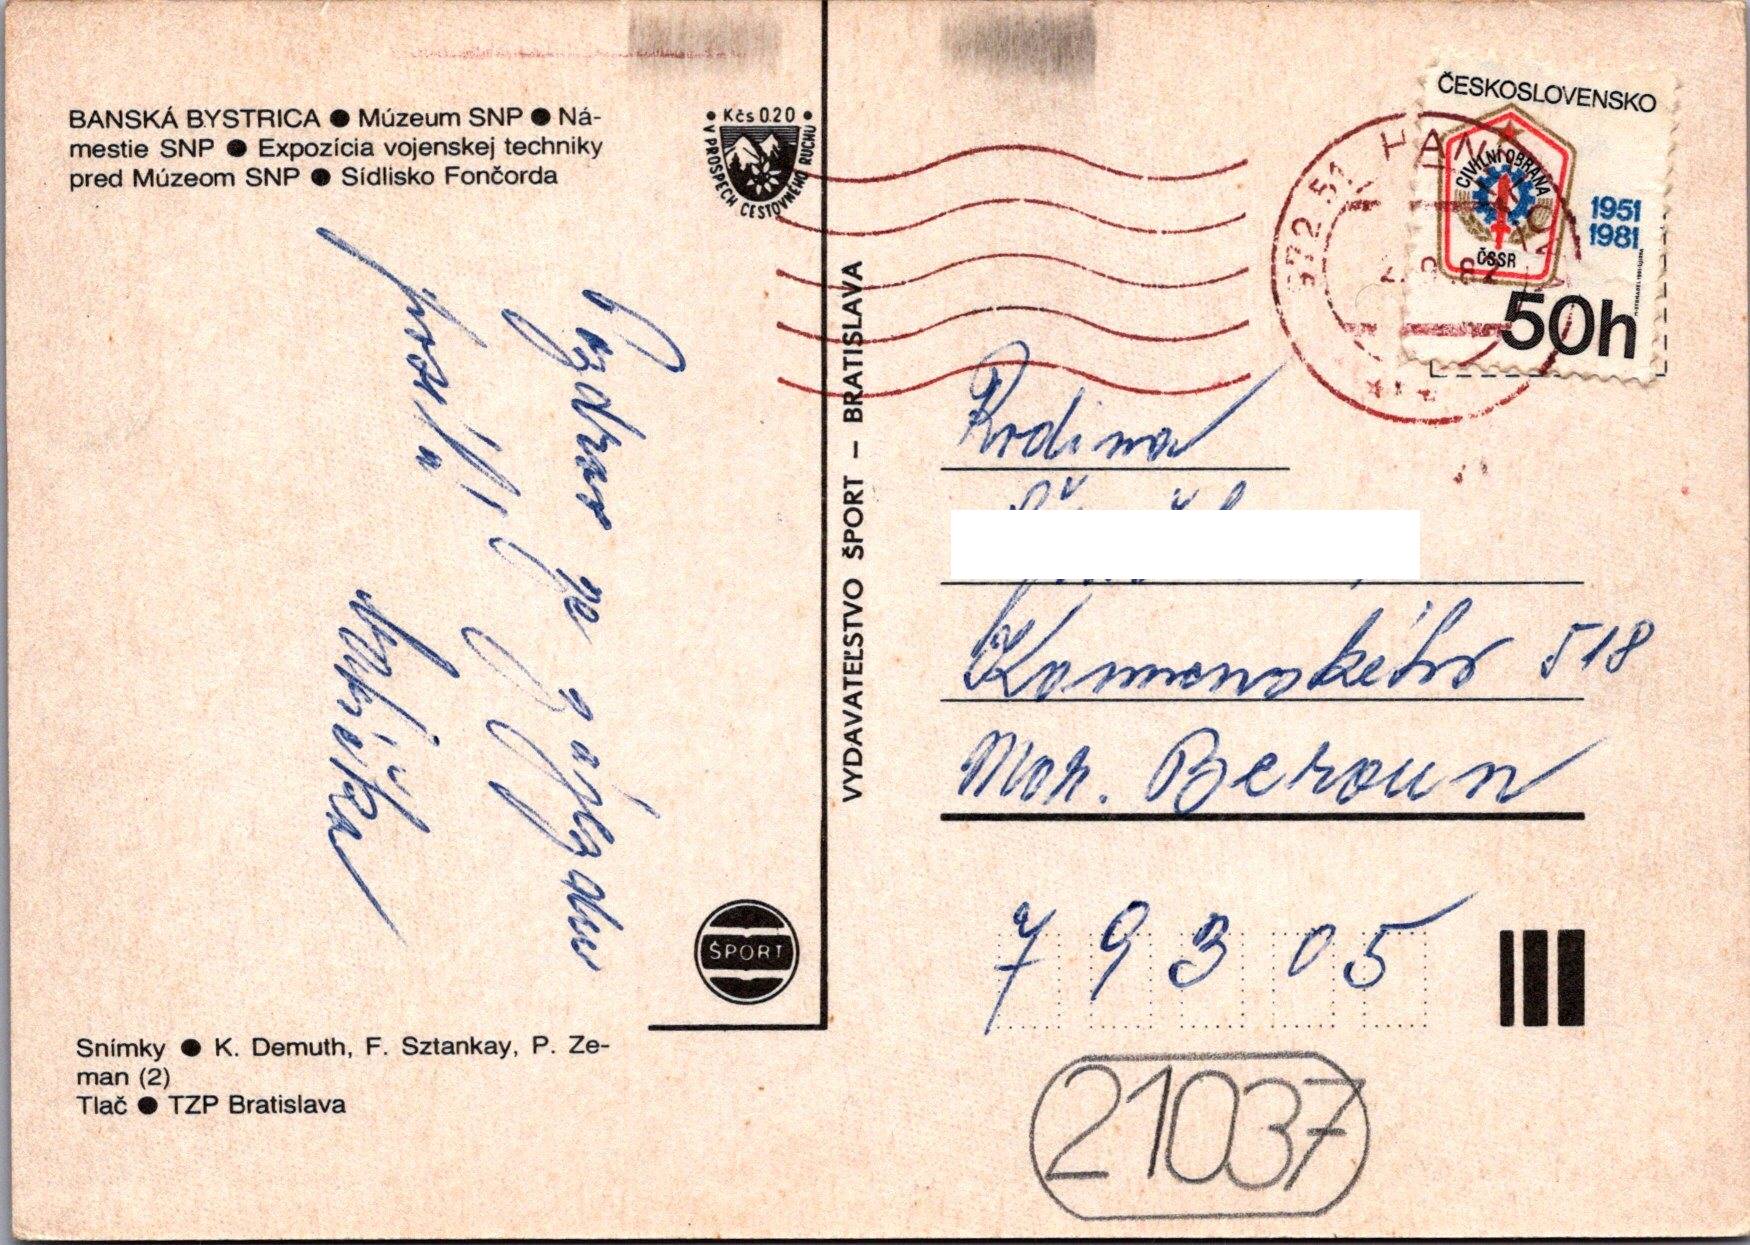 BANSKÁ BYSTRICA ● Múzeum SNP ● Ná-
mestie SNP ● Expozícia vojenskej techniky
pred Múzeom SNP ● Sídlisko Fončorda
• Kčs 0.20 •
V PROSPECH CESTOVNÉHO RUCHU
Pozdrav ze zájezdu
posílá
ŠPORT
Snímky ● K. Demuth, F. Sztankay, P. Ze-
man (2)
Tlač ● TZP Bratislava
VYDAVATEĽSTVO ŠPORT – BRATISLAVA
ČESKOSLOVENSKO
CIVILNÍ OBRANA
ČSSR
1951
1981
50h
Rodina
Komenského 518
Mor. Beroun
79305
21037